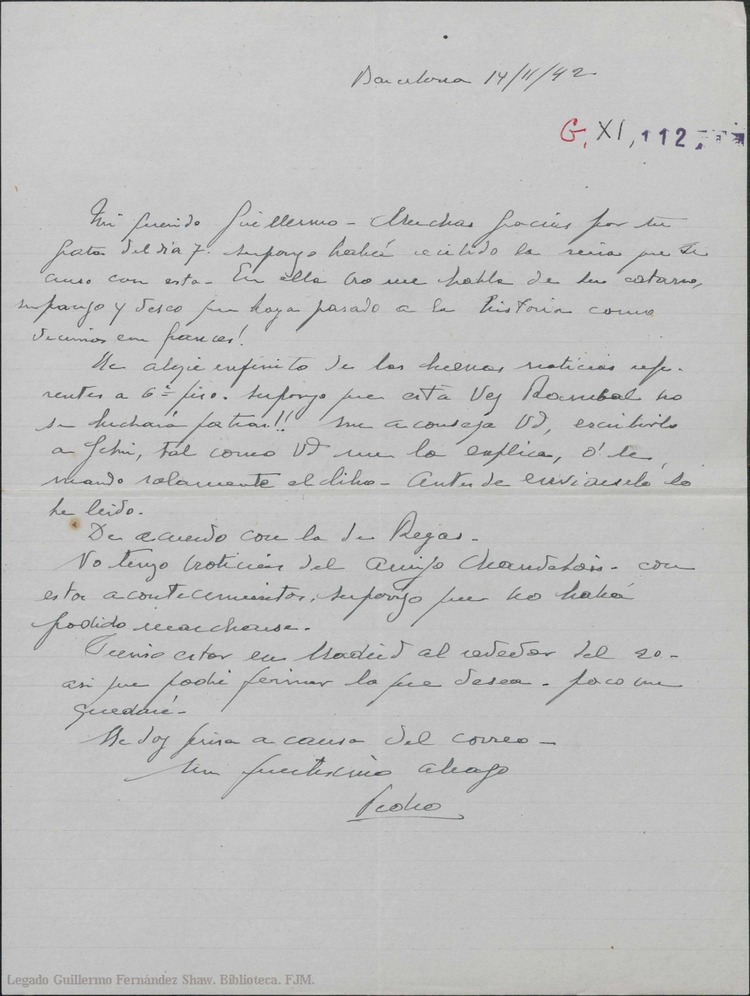 Barcelona 14/11/42
G. XI, 112.
Mi querido Guillermo - Muchas gracias por tu
grata del día 7. Supongo habrá recibido la mia que se
cruzo con esta - En ella no me habla de su catarro,
supongo y deseo que haya pasado a la historia como
decimos en frances!
Me alegré infinito de las buenas noticias refe-
rentes a 6º piso. Supongo que esta vez Rambal no
se hechará patras!! Me aconseja Vd, escribirle
a , tal como Vd me lo explica, ó le
mando solamente el libro - Antes de enviarselo lo
he leido.
De acuerdo con la de Regas -
No tengo noticias del amigo - con
estos acontecimientos, supongo que no habrá
podido marcharse.
Pienso estar en Madrid al rededor del 20 -
asi que podré firmar lo que desea - poco me
quedaré -
Me doy prisa a causa del correo -
Un fuertisimo abrazo
Pedro
Legado Guillermo Fernández Shaw. Biblioteca. FJM.